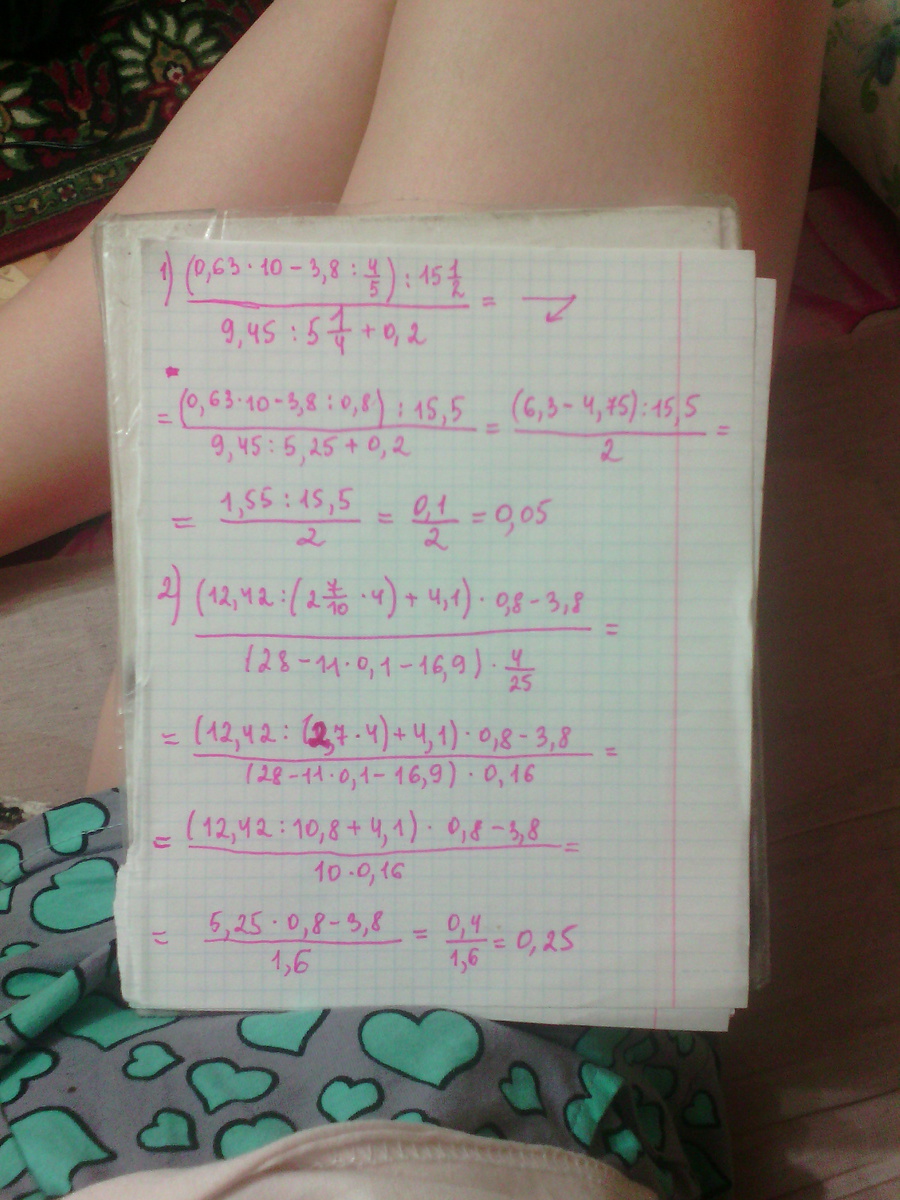 1) ((0,63·10 − 3,8 : 4/5) : 15 1/2) / (9,45 : 5 1/4 + 0,2) =
= ((0,63·10 − 3,8 : 0,8) : 15,5) / (9,45 : 5,25 + 0,2) = ((6,3 − 4,75) : 15,5) / 2 =
= (1,55 : 15,5) / 2 = 0,1/2 = 0,05
2) ((12,42 : (2 7/10 · 4) + 4,1) · 0,8 − 3,8) / ((28 − 11·0,1 − 16,9) · 4/25) =
= ((12,42 : (2,7 · 4) + 4,1) · 0,8 − 3,8) / ((28 − 11·0,1 − 16,9) · 0,16) =
= ((12,42 : 10,8 + 4,1) · 0,8 − 3,8) / (10·0,16) =
= (5,25 · 0,8 − 3,8) / 1,6 = 0,4/1,6 = 0,25